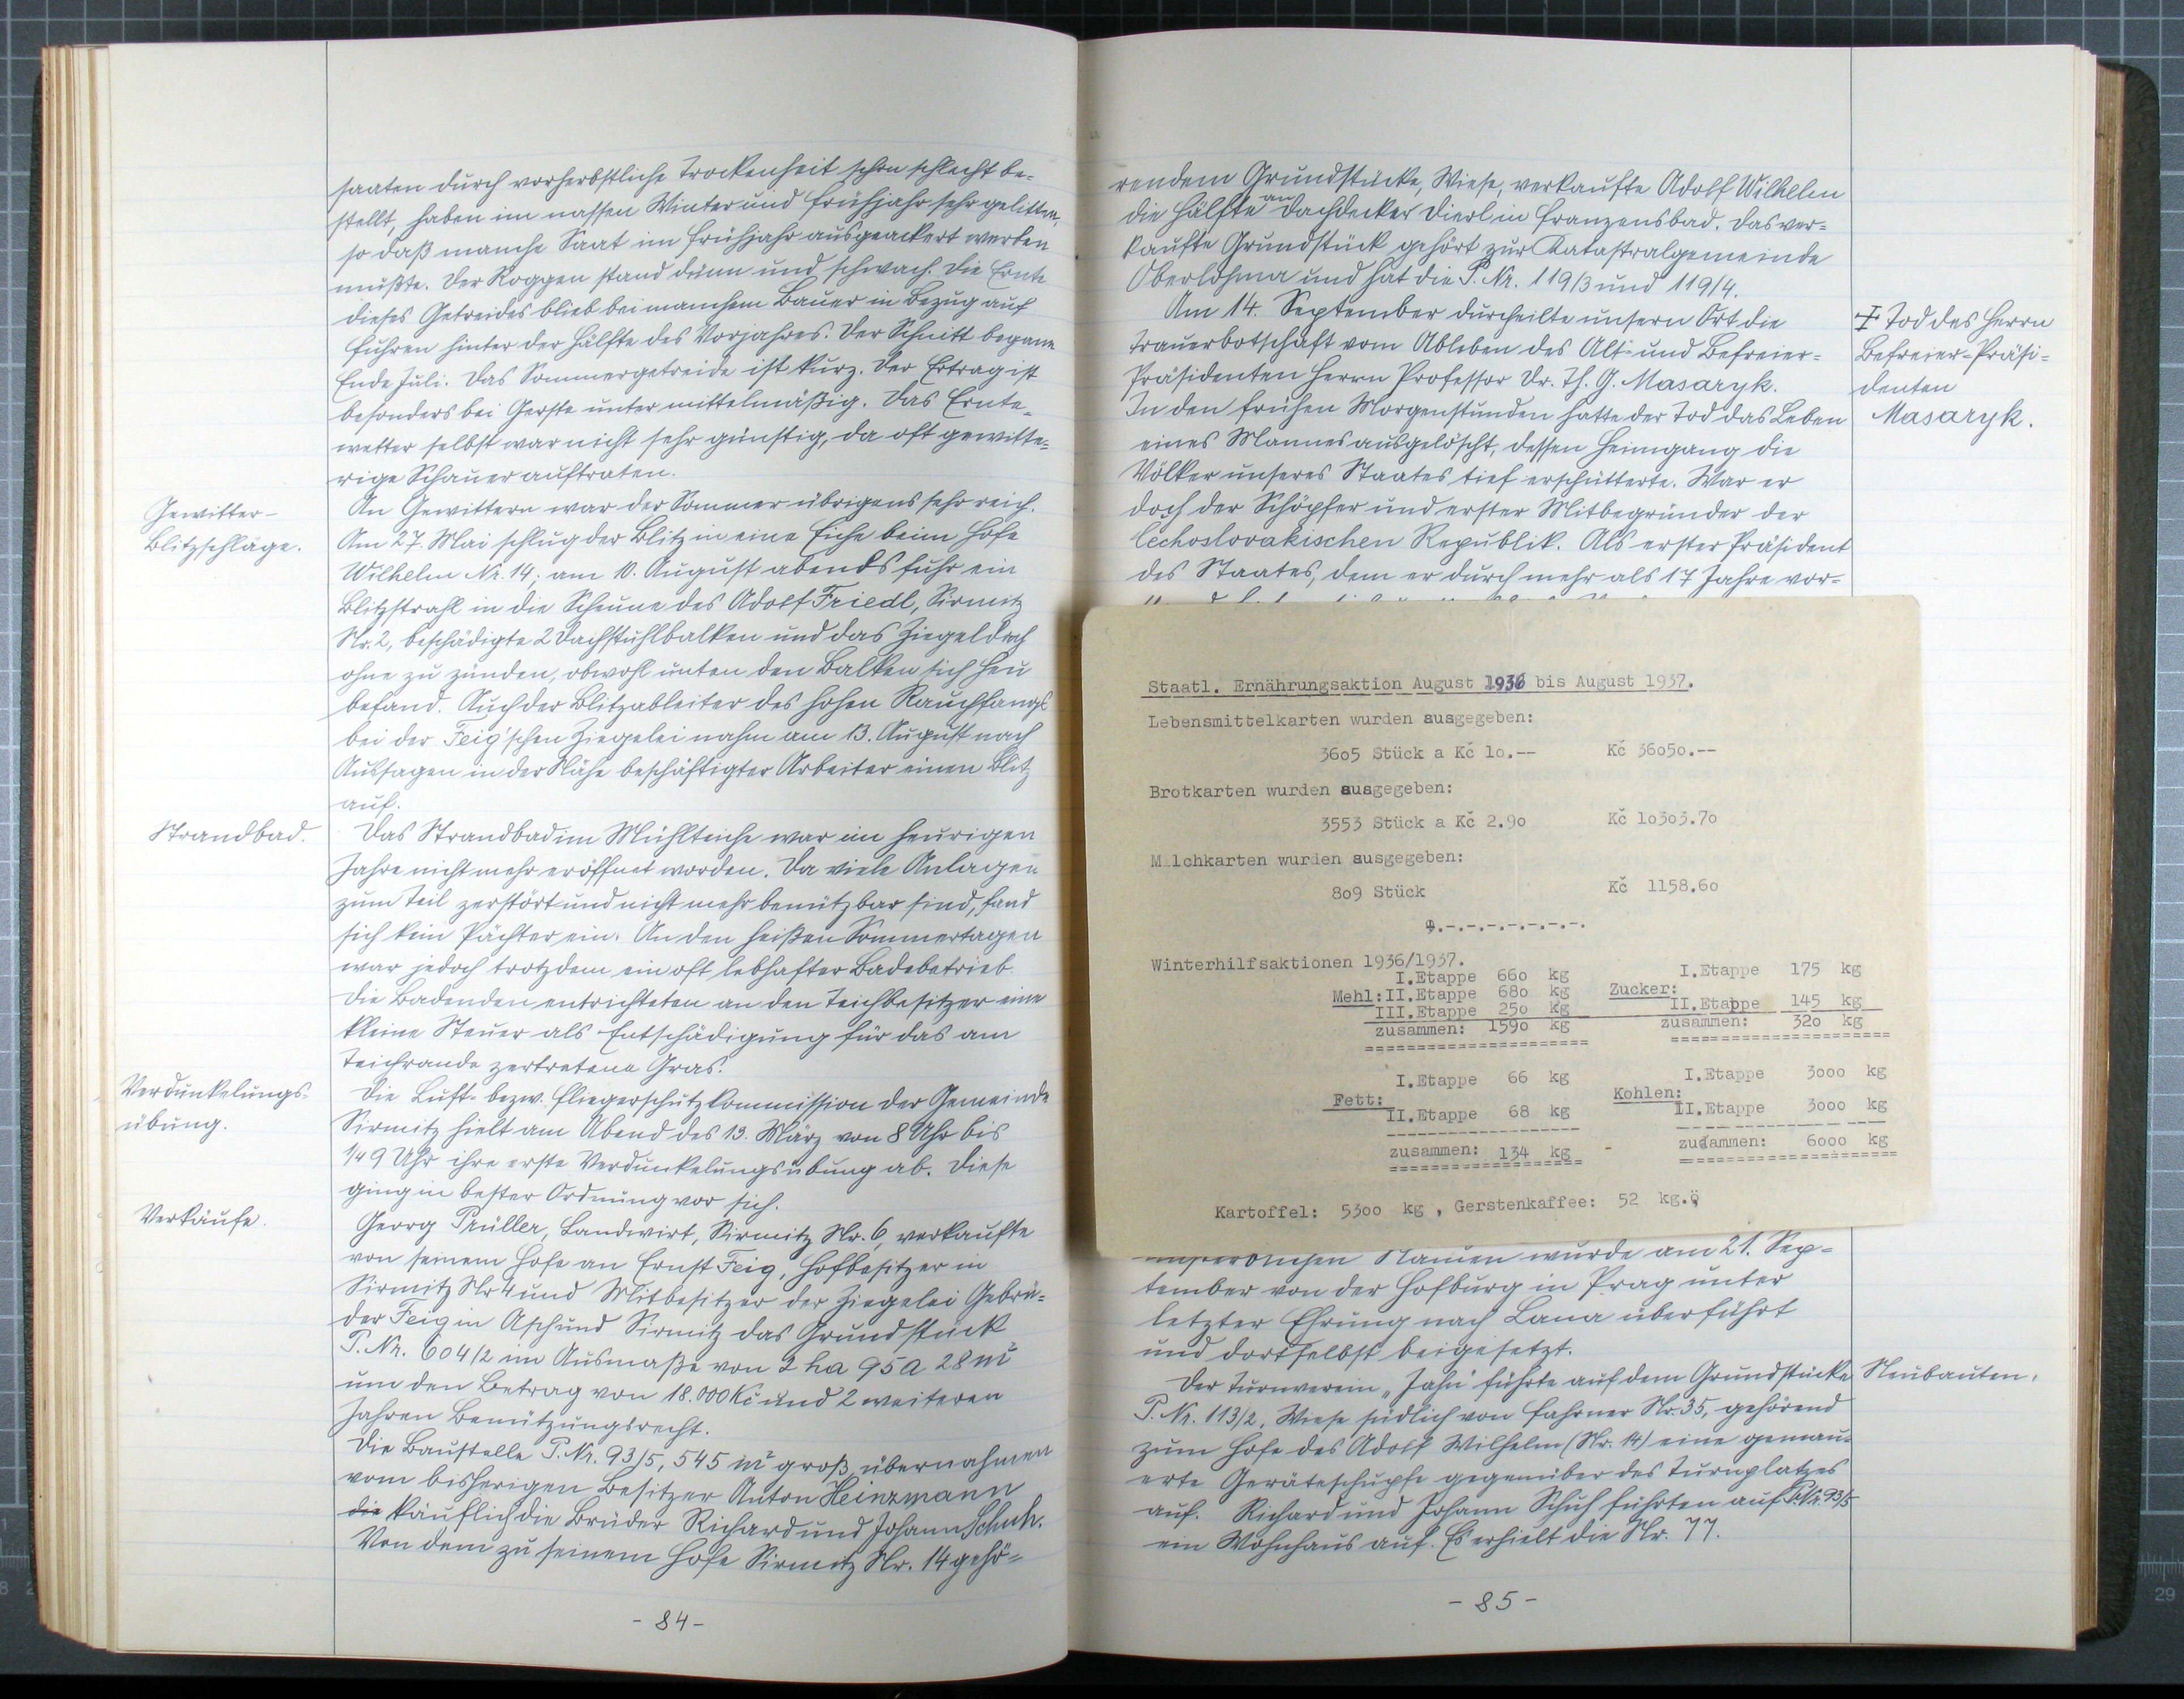 saaten durch vorherbstliche Trockenheit schon schlecht be-
stellt, haben im nassen Winter und Frühjahr sehr gelitten,
so daß manche Saat im Frühjahr ausgeackert werden
mußte. Der Roggen stand dünn und schwach. Die Ernte
dieses Getreides blieb bei manchem Bauer in Bezug auf
Fuhren hinter der Hälfte des Vorjahres. Der Schnitt begann
Ende Juli. Das Sommergetreide ist kurz. Der Ertrag ist
besonders bei Gerste unter mittelmäßig. Das Ernte-
wetter selbst war nicht sehr günstig, da oft gewitte-
rige Schauer auftraten.
Gewitter-
Blitzschläge.
An Gewittern war der Sommer übrigens sehr reich.
Am 27. Mai schlug der Blitz in eine Eiche beim Hofe
Wilhelm Nr. 14; am 10. August abends fuhr ein
Blitzstrahl in die Scheune des Adolf Friedl, Sirmitz
Nr. 2, beschädigte 2 Dachstuhlbalken und das Ziegeldach
ohne zu zünden, obwohl unten den Balken sich Heu
befand. Auch der Blitzableiter des hohen Rauchfangs
bei der Feig'schen Ziegelei nahm am 13. August nach
Aussagen in der Nähe beschäftigter Arbeiter einen Blitz
auf.
Strandbad.
Das Strandbad im Mühlteiche war im heurigen
Jahre nicht mehr eröffnet worden. Da viele Anlagen
zum Teil zerstört und nicht mehr benützbar sind, fand
sich kein Pächter ein. An den heißen Sommertagen
war jedoch trotzdem ein oft lebhafter Badebetrieb.
Die Badenden entrichteten an den Teichbesitzer eine
kleine Steuer als Entschädigung für das am
Teichrande zertretene Gras.
Verdunkelungs-
übung.
Die Luft- bezw. Fliegerschutzkommission der Gemeinde
Sirmitz hielt am Abend des 13. März von 8 Uhr bis
1/4 9 Uhr ihre erste Verdunkelungsübung ab. Diese
ging in bester Ordnung vor sich.
Verkäufe.
Georg Prüller, Landwirt, Sirmitz Nr. 6, verkaufte
von seinem Hofe an Ernst Feig, Hofbesitzer in
Sirmitz Nr 4 und Mitbesitzer der Ziegelei Gebrü-
der Feig in Asch und Sirmitz das Grundstück
P. Nr. 604/2 im Ausmaße von 2 ha 95 a 28 m²
um den Betrag von 18.000 Kč und 2 weiteren
Jahren Benützungsrecht.
Die Baustelle P. Nr. 93/5, 545 m² groß, übernahmen
vom bisherigen Besitzer Anton Heinzmann
die käuflich die Brüder Richard und Johann Schuh.
Von dem zu seinem Hofe Sirmitz Nr. 14 gehö-
- 84 -
rendem Grundstücke, Wiese, verkaufte Adolf Wilhelm
die Hälfte an Dachdecker Dierl in Franzensbad. Das ver-
kaufte Grundstück gehört zur Katastralgemeinde
Oberlohma und hat die P. Nr. 119/3 und 119/4.
Am 14. September durcheilte unsern Ort die
Trauerbotschaft vom Ableben des Alt- und Befreier-
Präsidenten Herrn Professor Dr. Th. G. Masaryk.
In den frühen Morgenstunden hatte der Tod das Leben
eines Mannes ausgelöscht, dessen Heimgang die
Völker unseres Staates tief erschütterte. War er
doch der Schöpfer und erster Mitbegründer der
čechoslovakischen Republik. Als erster Präsident
des Staates, dem er durch mehr als 17 Jahre vor-
Tod des Herrn
Befreier-Präsi-
denten
Masaryk.
Staatl. Ernährungsaktion August 1936 bis August 1937.
Lebensmittelkarten wurden ausgegeben:
3605 Stück a Kč 10.-- Kč 36050.--
Brotkarten wurden ausgegeben:
3553 Stück a Kč 2.90 Kč 10303.70
M lchkarten wurden ausgegeben:
809 Stück Kč 1158.60
Winterhilfsaktionen 1936/1937.
I.Etappe 660 kg I.Etappe 175 kg
Mehl:II.Etappe 680 kg Zucker:
III.Etappe 250 kg II.Etappe 145 kg
zusammen: 1590 kg zusammen: 320 kg
I.Etappe 66 kg I.Etappe 3000 kg
Fett: Kohlen:
II.Etappe 68 kg II.Etappe 3000 kg
zusammen: 134 kg - zudammen: 6000 kg
Kartoffel: 5300 kg , Gerstenkaffee: 52 kg.
Namen wurde am 21. Sep-
tember von der Hofburg in Prag unter
letzter Ehrung nach Lana überführt
und dortselbst beigesetzt.
Neubauten.
Der Turnverein „Jahn" führte auf dem Grundstücke
P. Nr. 113/2, Wiese südlich von Fahrner Nr. 35, gehörend
zum Hofe des Adolf Wilhelm (Nr. 14) eine gemau-
erte Geräteschupfe gegenüber des Turnplatzes
auf. Richard und Johann Schuh führten auf P. Nr. 93/5
ein Wohnhaus auf. Es erhielt die Nr. 77.
- 85 -